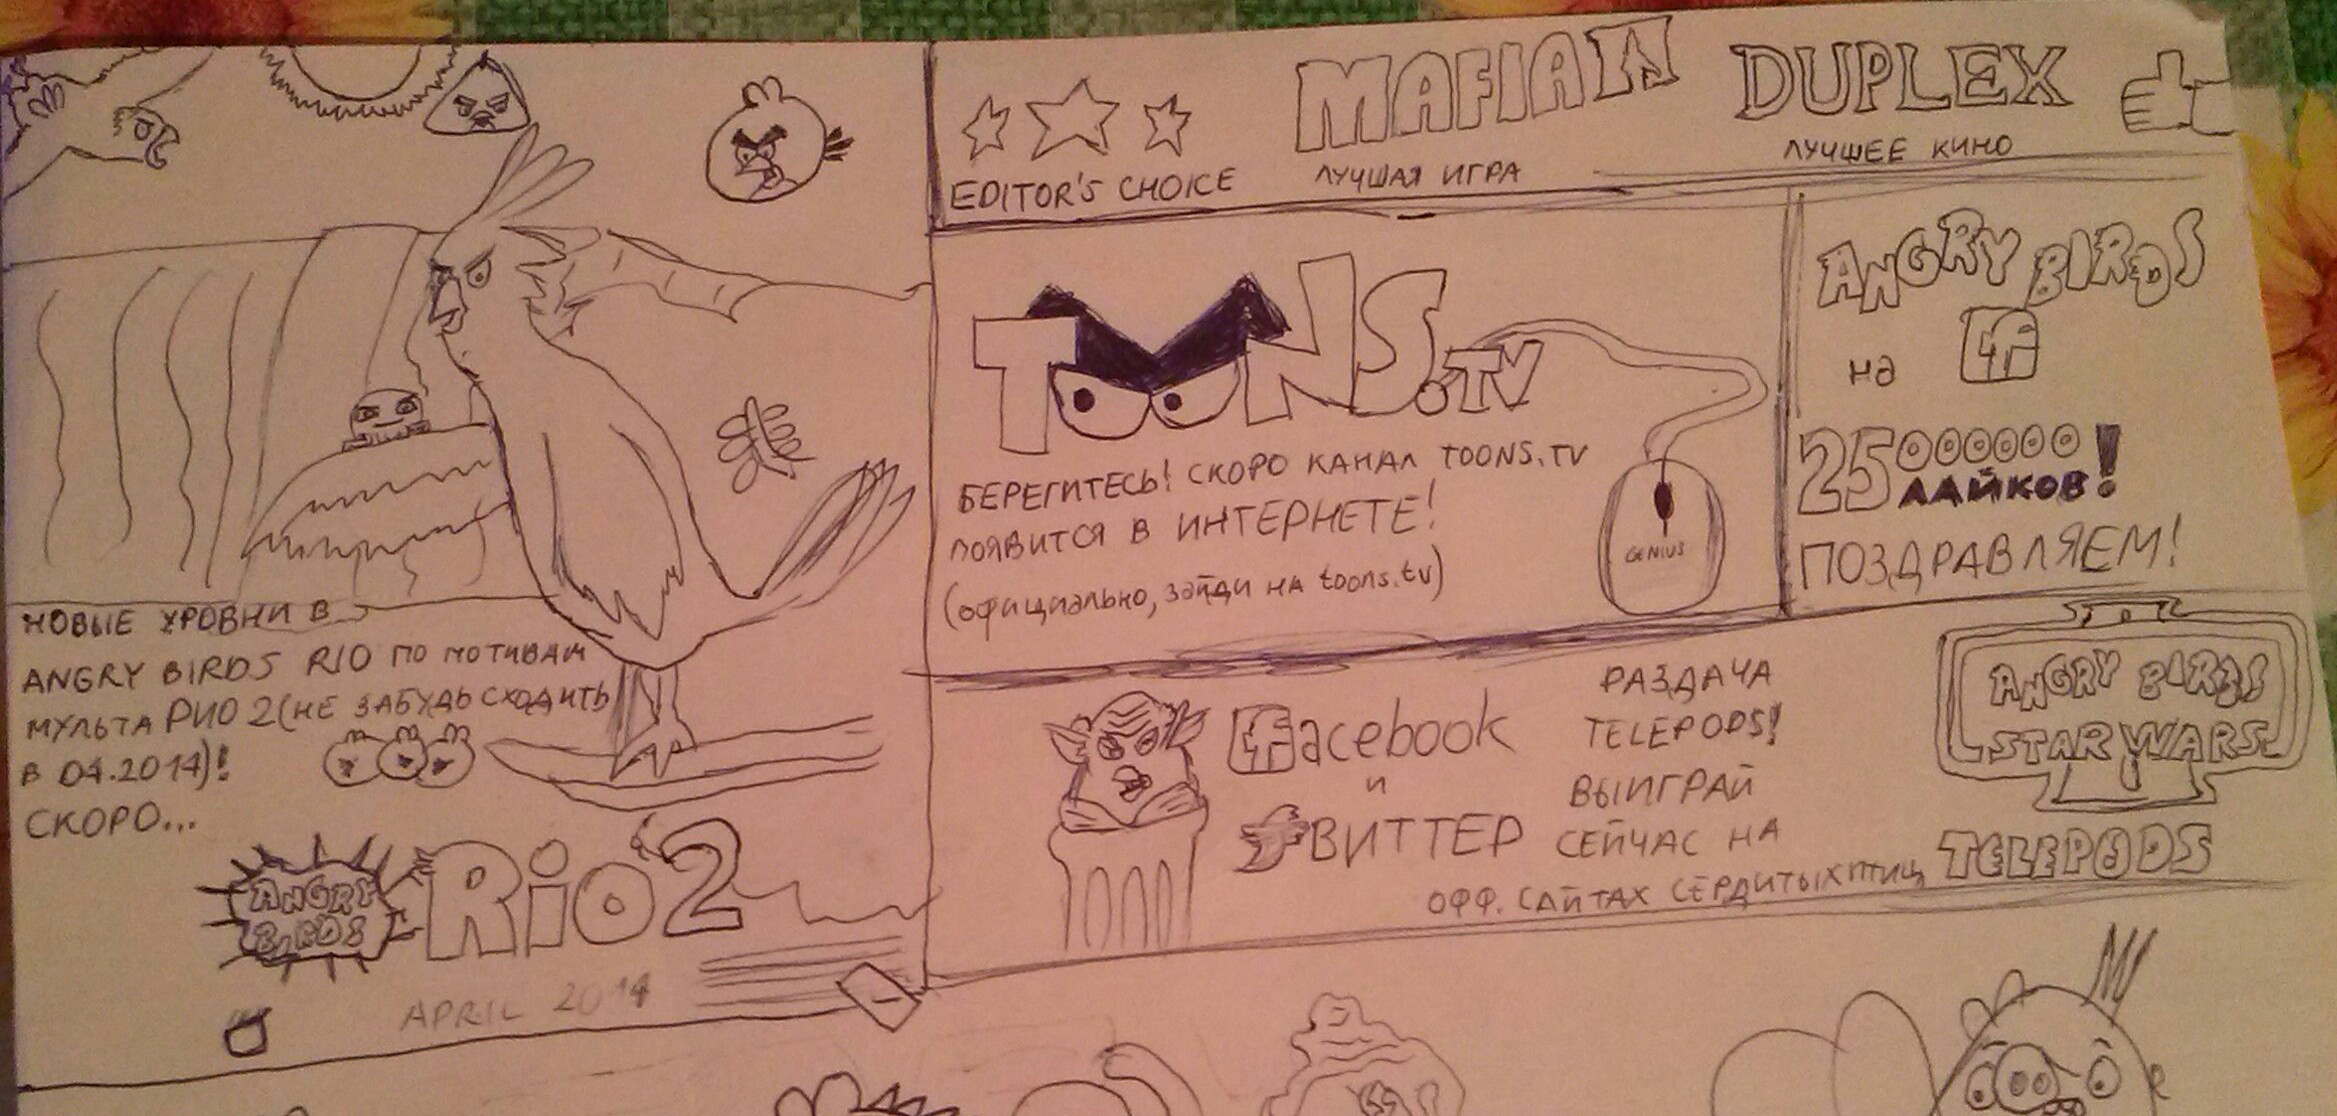 EDITOR'S CHOICE
MAFIA
ЛУЧШАЯ ИГРА
DUPLEX
ЛУЧШЕЕ КИНО
TOONS.TV
БЕРЕГИТЕСЬ! СКОРО КАНАЛ TOONS.TV
ПОЯВИТСЯ В ИНТЕРНЕТЕ!
(официально, зайди на toons.tv)
GENIUS
ANGRY BIRDS
на f
25000000
ЛАЙКОВ!
ПОЗДРАВЛЯЕМ!
НОВЫЕ УРОВНИ В
ANGRY BIRDS RIO ПО МОТИВАМ
МУЛЬТА РИО 2 (НЕ ЗАБУДЬ СХОДИТЬ
В 04.2014)!
СКОРО...
ANGRY
BIRDS
Rio 2
APRIL 2014
facebook
и
ВИТТЕР
РАЗДАЧА
TELEPODS!
ВЫИГРАЙ
СЕЙЧАС НА
ОФФ. САЙТАХ СЕРДИТЫХ ПТИЦ
ANGRY BIRDS
STAR WARS
TELEPODS